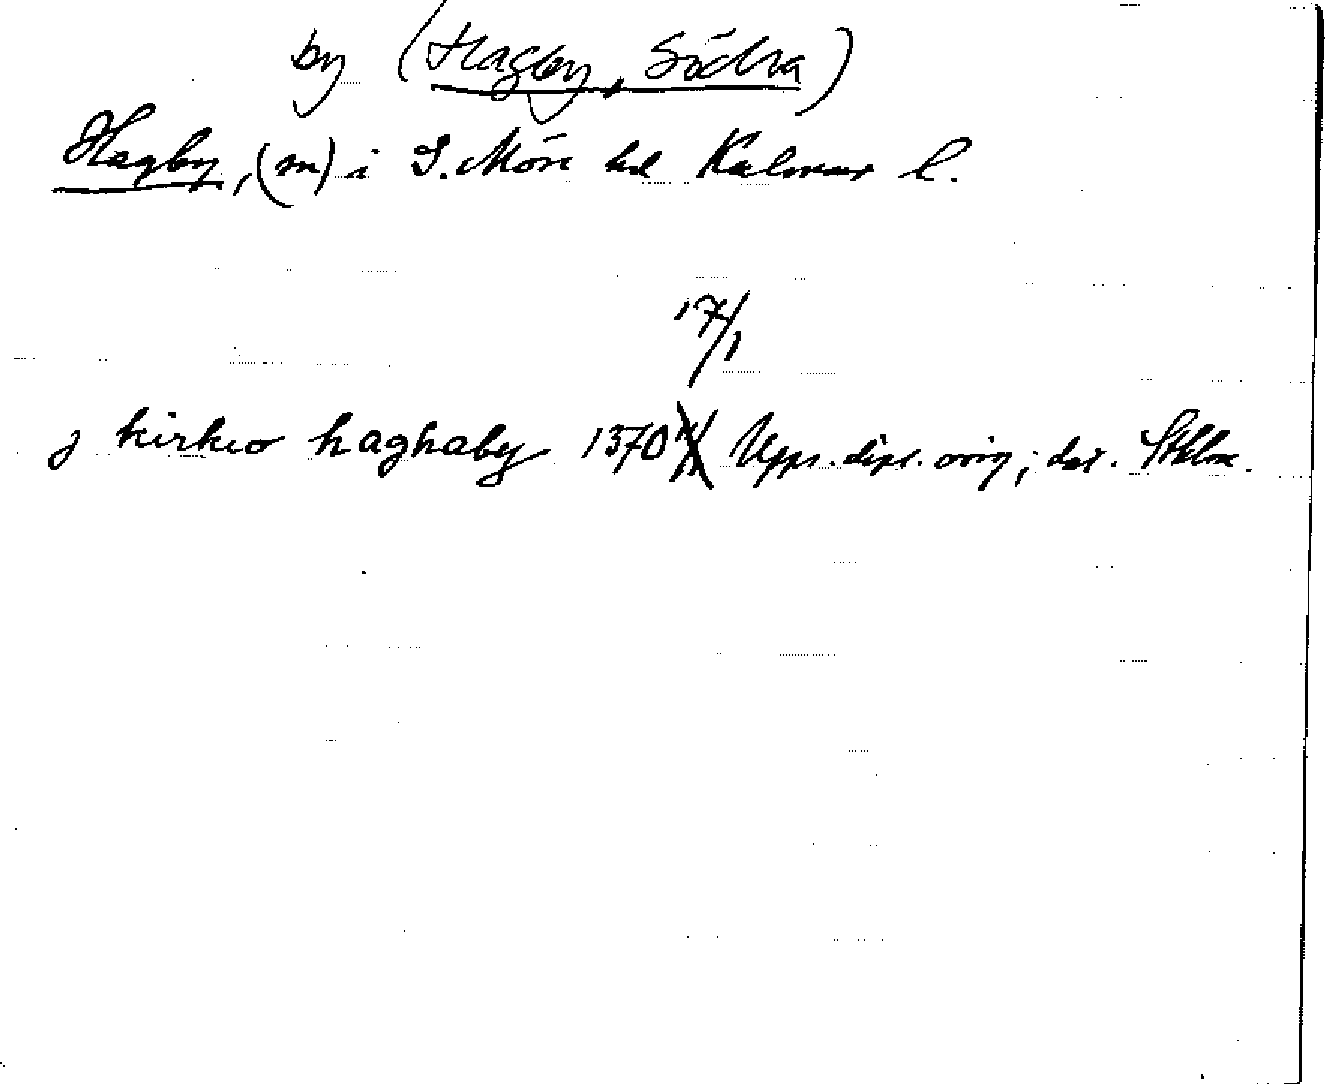 by (Hagby, Södra)
Hagby, (sn) i S. Möre hd Kalmar l.
17/1
j kirkio haghaby 1370 Upps. dipl. orig; dat. Sthlm.